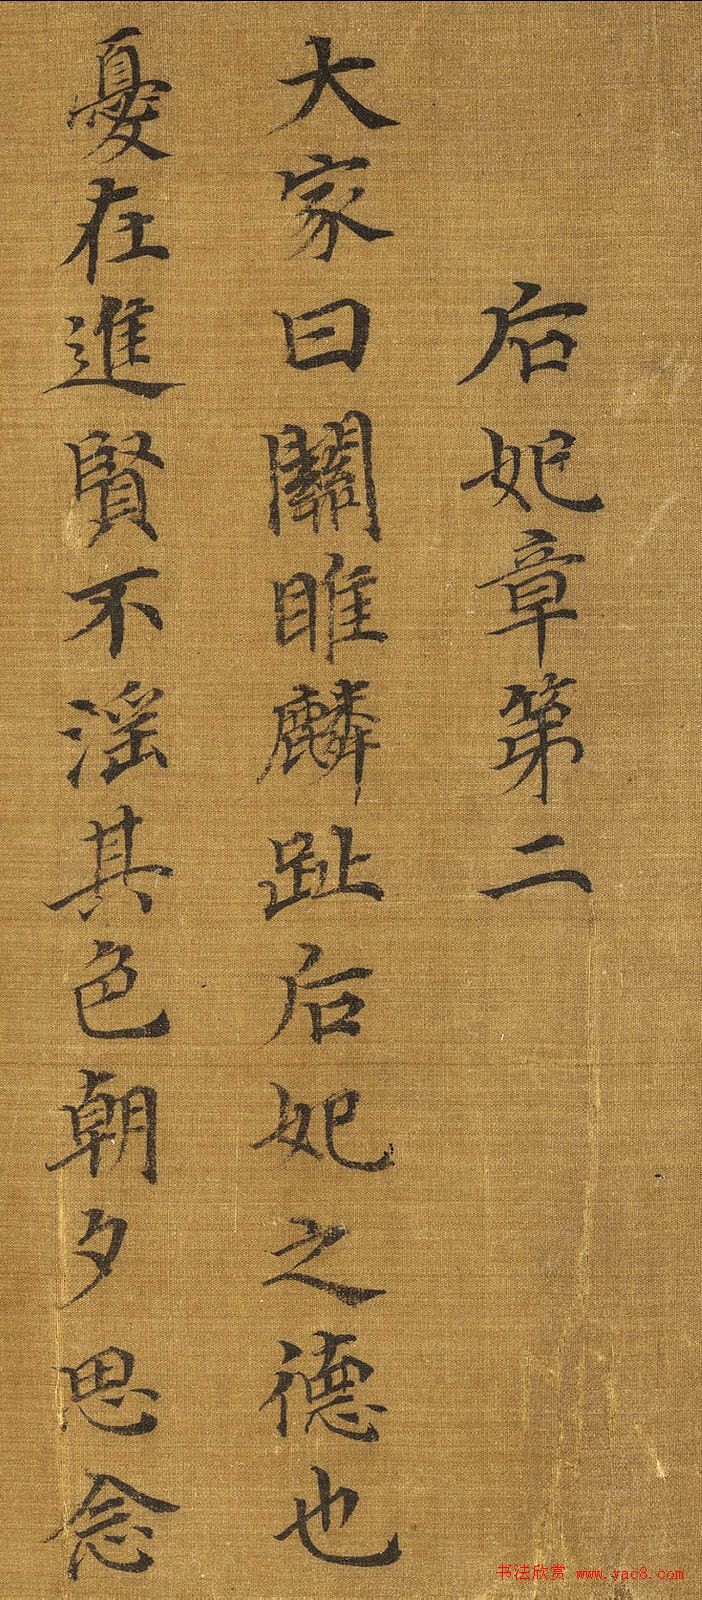 后妃章第二
大家曰關雎麟趾后妃之德也
憂在進賢不淫其色朝夕思念
书法欣赏 www.yac8.com